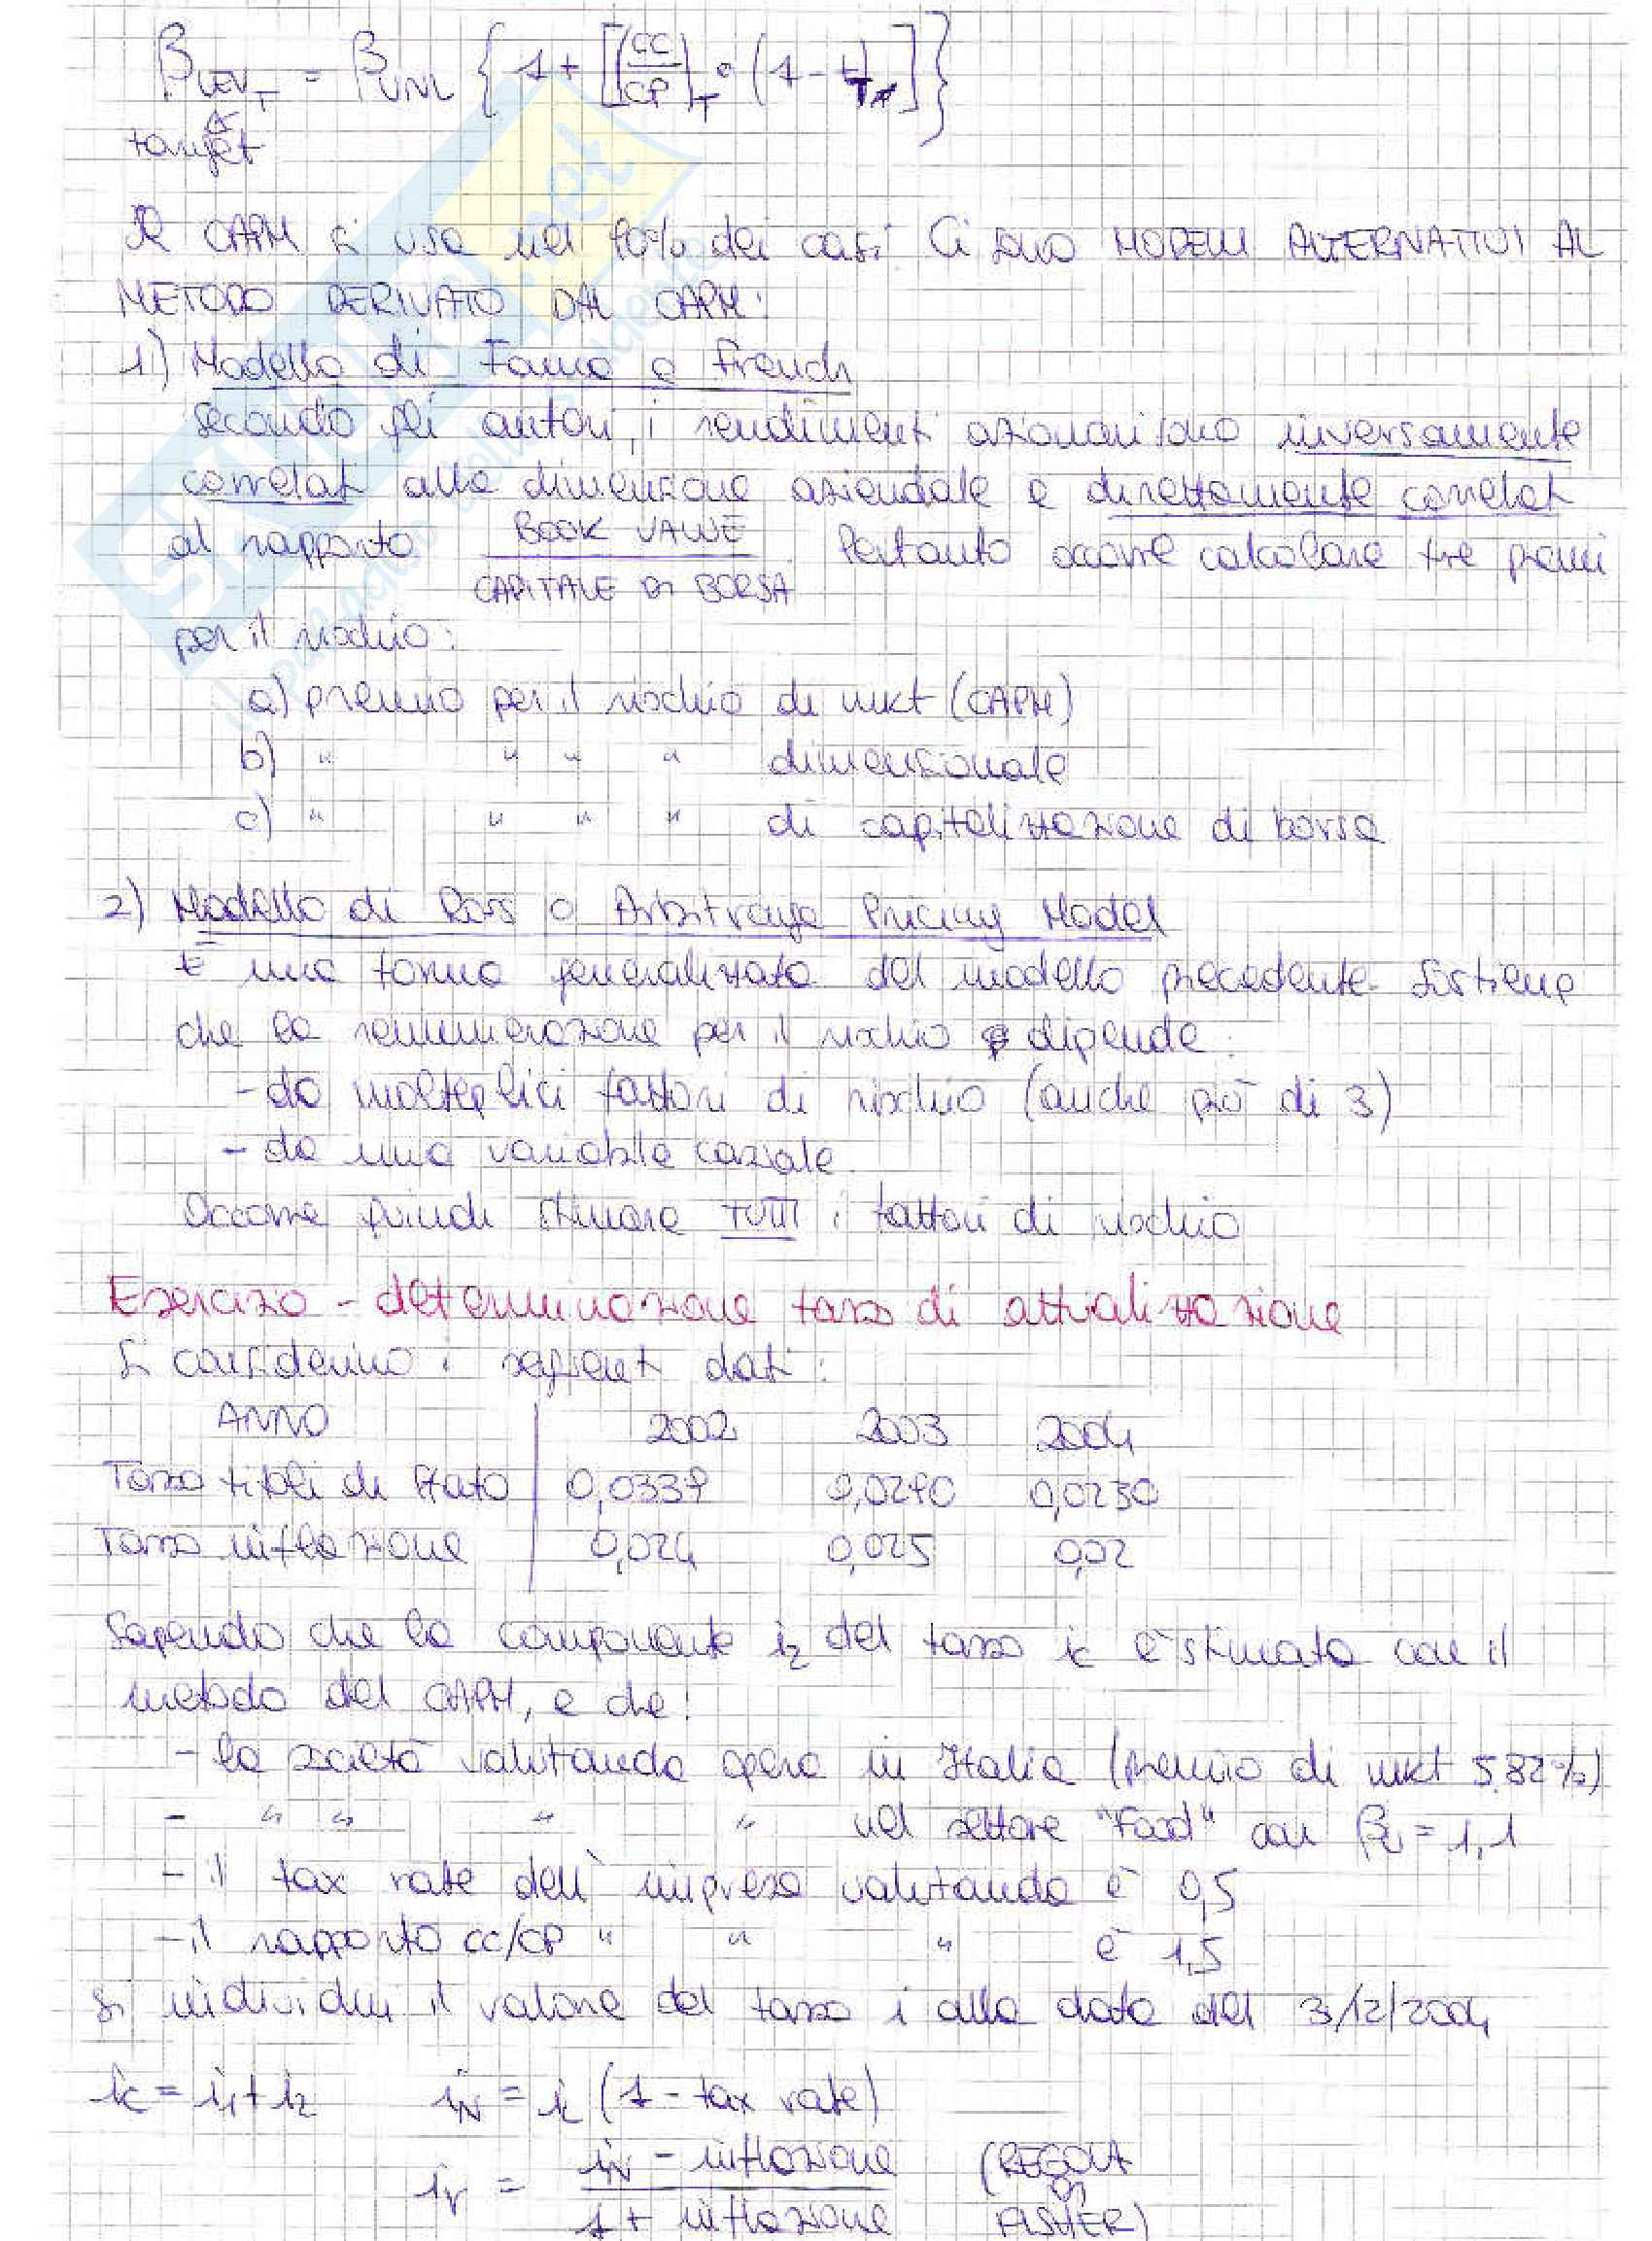 β LEV_T = β UNL { 1 + [ (CC/CP)_T • (1 - t_T*) ] }
target
Il CAPM si usa nel 90% dei casi Ci sono MODELLI ALTERNATIVI AL
METODO DERIVATO DAL CAPM:
1) Modello di Fama e French
Secondo gli autori, i rendimenti azionari sono inversamente
correlati alla dimensione aziendale e direttamente correlati
al rapporto BOOK VALUE / CAPITALE DI BORSA Pertanto occorre calcolare tre premi
per il rischio:
a) premio per il rischio di mkt (CAPM)
b) " " " " dimensionale
c) " " " " di capitalizzazione di borsa
2) Modello di Ross o Arbitrage Pricing Model
È una forma generalizzata del modello precedente. Sostiene
che la remunerazione per il rischio dipende:
- da molteplici fattori di rischio (anche più di 3)
- da una variabile casuale
Occorre quindi stimare TUTTI i fattori di rischio
Esercizio - determinazione tasso di attualizzazione
Si considerino i seguenti dati:
ANNO 2002 2003 2004
Tasso titoli di Stato 0,0339 0,0290 0,0230
Tasso inflazione 0,024 0,025 0,02
Sapendo che la componente i2 del tasso ic è stimata con il
metodo del CAPM, e che:
- la società valutanda opera in Italia (premio di mkt 5.82%)
- " " " " nel settore "Food" con βu = 1,1
- il tax rate dell'impresa valutanda è 0,5
- il rapporto CC/CP " " " è 1,5
Si individui il valore del tasso i alla data del 3/12/2004
ic = i1 + i2 iN = ic (1 - tax rate)
ir = iN - inflazione / 1 + inflazione (REGOLA DI FISHER)